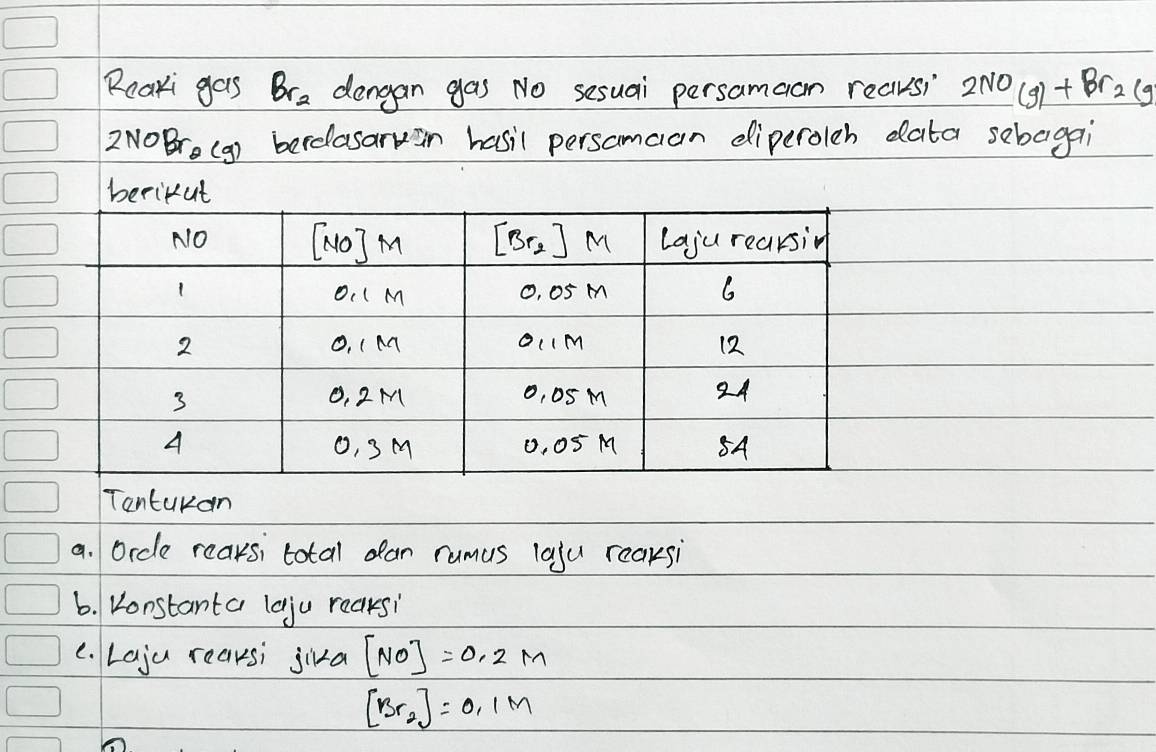 Reaksi gas Br₂ dengan gas NO sesuai persamaan reaksi 2NO (g) + Br₂ (g
2NOBr₂ (g) berdasarkan hasil persamaan diperoleh data sebagai
berikut
NO [NO] M [Br₂] M Laju reaksi
1 0,1 M 0,05 M 6
2 0,1 M 0,1 M 12
3 0,2 M 0,05 M 24
4 0,3 M 0,05 M 54
Tentukan
a. Orde reaksi total dan rumus laju reaksi
b. Konstanta laju reaksi
c. Laju reaksi jika [NO] = 0,2 M
[Br₂] = 0,1 M